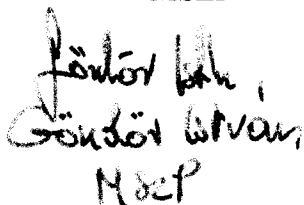 Göndör
Göndör István,
MSzP